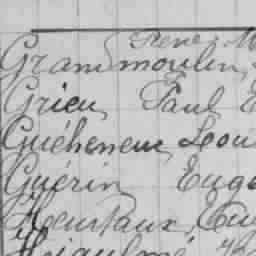 René M
Grandmoulin,
Grieu, Paul E
Guéheneuc Léou
Guérin Euge
Heurtaux, Eug